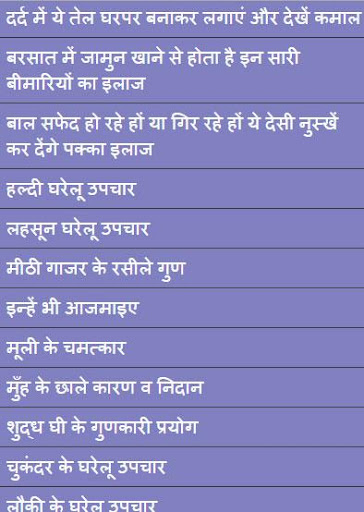 दर्द में ये तेल घरपर बनाकर लगाएं और देखें कमाल
बरसात में जामुन खाने से होता है इन सारी
बीमारियों का इलाज
बाल सफेद हो रहे हों या गिर रहे हों ये देसी नुस्खें
कर देंगे पक्का इलाज
हल्दी घरेलू उपचार
लहसून घरेलू उपचार
मीठी गाजर के रसीले गुण
इन्हें भी आजमाइए
मूली के चमत्कार
मुँह के छाले कारण व निदान
शुद्ध घी के गुणकारी प्रयोग
चुकंदर के घरेलू उपचार
लौकी के घरेलू उपचार